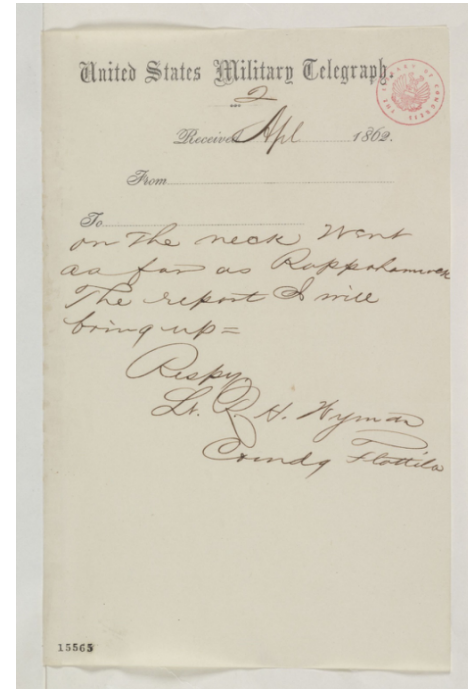 United States Military Telegraph.
2
Received Apl 1862.
From
To
on the neck Went
as far as Rappahannock
The report I will
bring up =
Respy
Lt. R. H. Wyman
Comdg Flottila
THE LIBRARY OF CONGRESS
15565